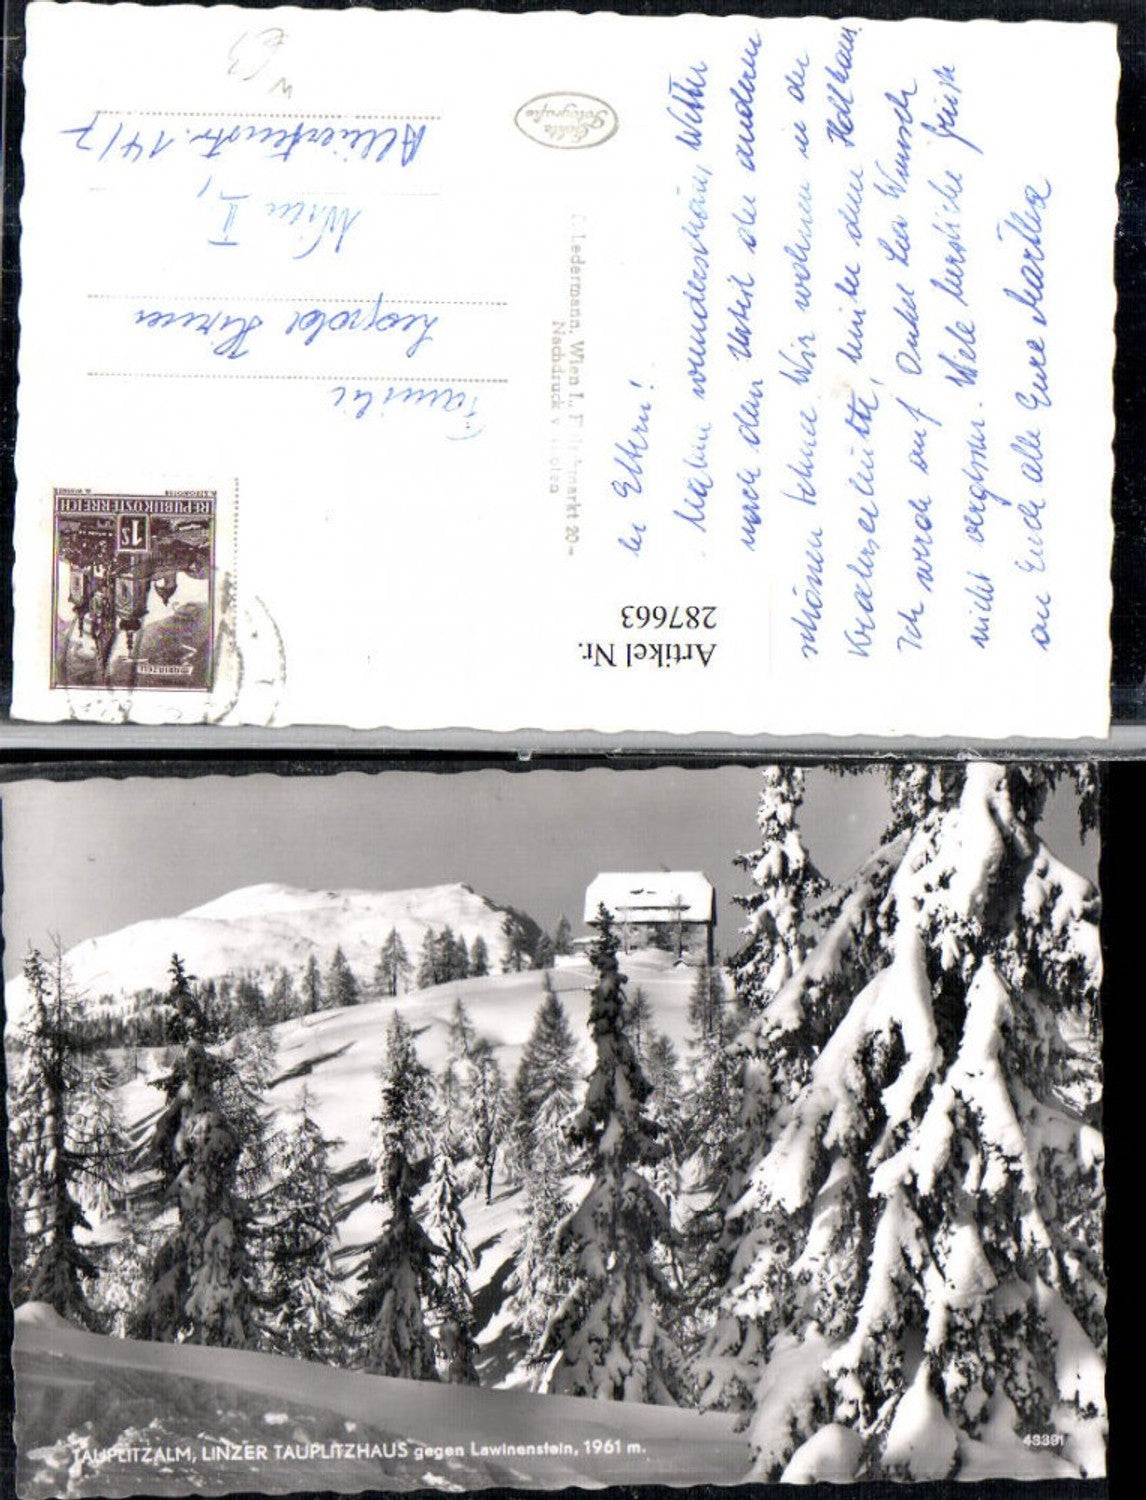 Liebe Eltern!
Haben wunderschönes Wetter
nach dem
schönen Schnee. Wir wohnen in der
Kraxlerhütte, hinter dem Hollhaus.
Ich werde auf Onkel Leo Wunsch
nicht vergessen. Viele herzliche Grüße
an Euch alle Eure Martha
Familie
Leopold
Wien II,
Alliiertenstr. 14/7
W 63
Echte
Fotografie
Ledermann, Wien I., Fleischmarkt 20 -
Nachdruck verboten
REPUBLIK ÖSTERREICH
1S
MARIAZELL
Artikel Nr.
287663
TAUPLITZALM, LINZER TAUPLITZHAUS gegen Lawinenstein, 1961 m.
43391